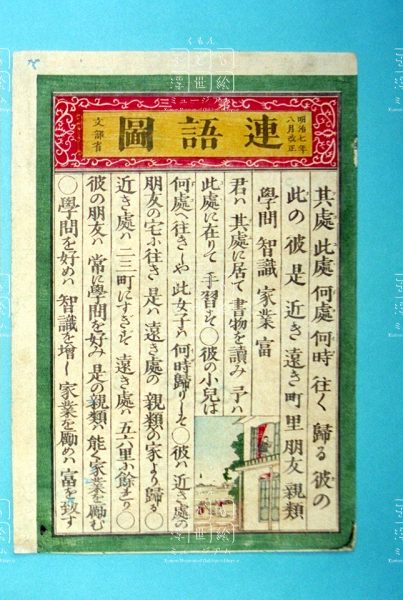 第三
連語圖
明治七年
八月改正
文部省
其處 此處 何處 何時 往く 歸る 彼の
此の 彼 是 近き 遠き 町 里 朋友 親類
學問 智識 家業 富
君ハ 其處に居て 書物を讀み 予ハ
此處に在りて 手習をす ○彼の小兒は
何處へ往きしや 此女子ハ 何時歸りしぞ ○彼ハ 近き處の
朋友の宅に往き 是ハ 遠き處の 親類の家より歸る
近き處ハ 二三町にすぎず 遠き處ハ 五六里に餘まり ○
彼の朋友ハ 常に學問を好み 是の親類ハ 能く家業を勵む
○學問を好めハ 智識を增し 家業を勵めハ 富を致す
くもん
子ども浮世絵
ミュージアム